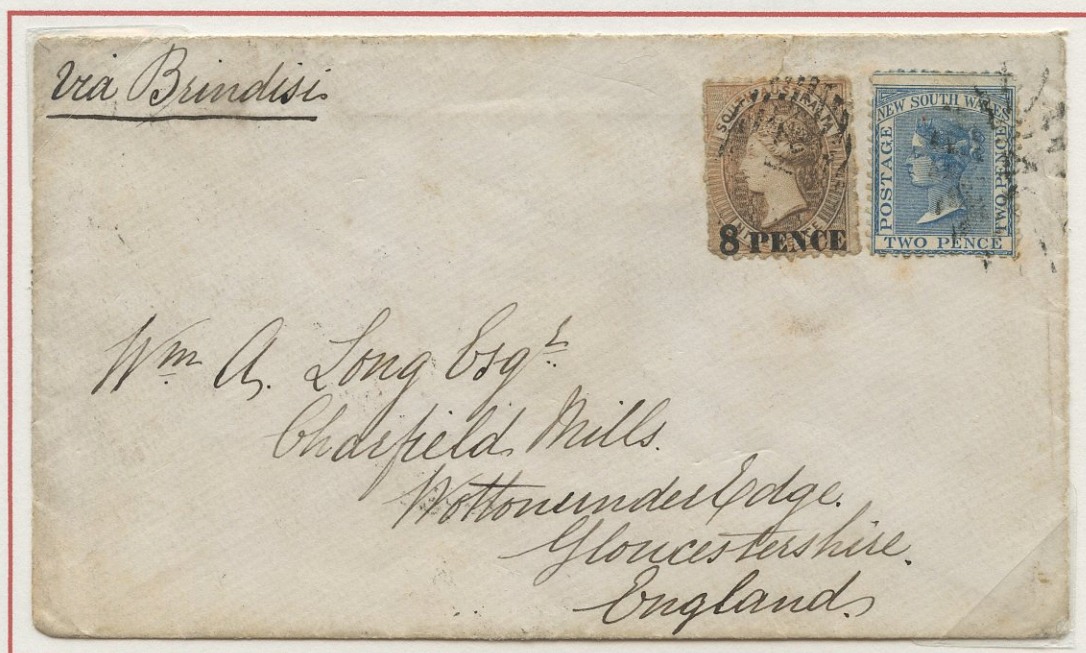 via Brindisi
SOUTH AUSTRALIA
8 PENCE
NEW SOUTH WALES
POSTAGE
TWO PENCE
TWO PENCE
Wm A. Long Esqr
Charfield Mills.
Wottonunder Edge.
Gloucestershire.
England.